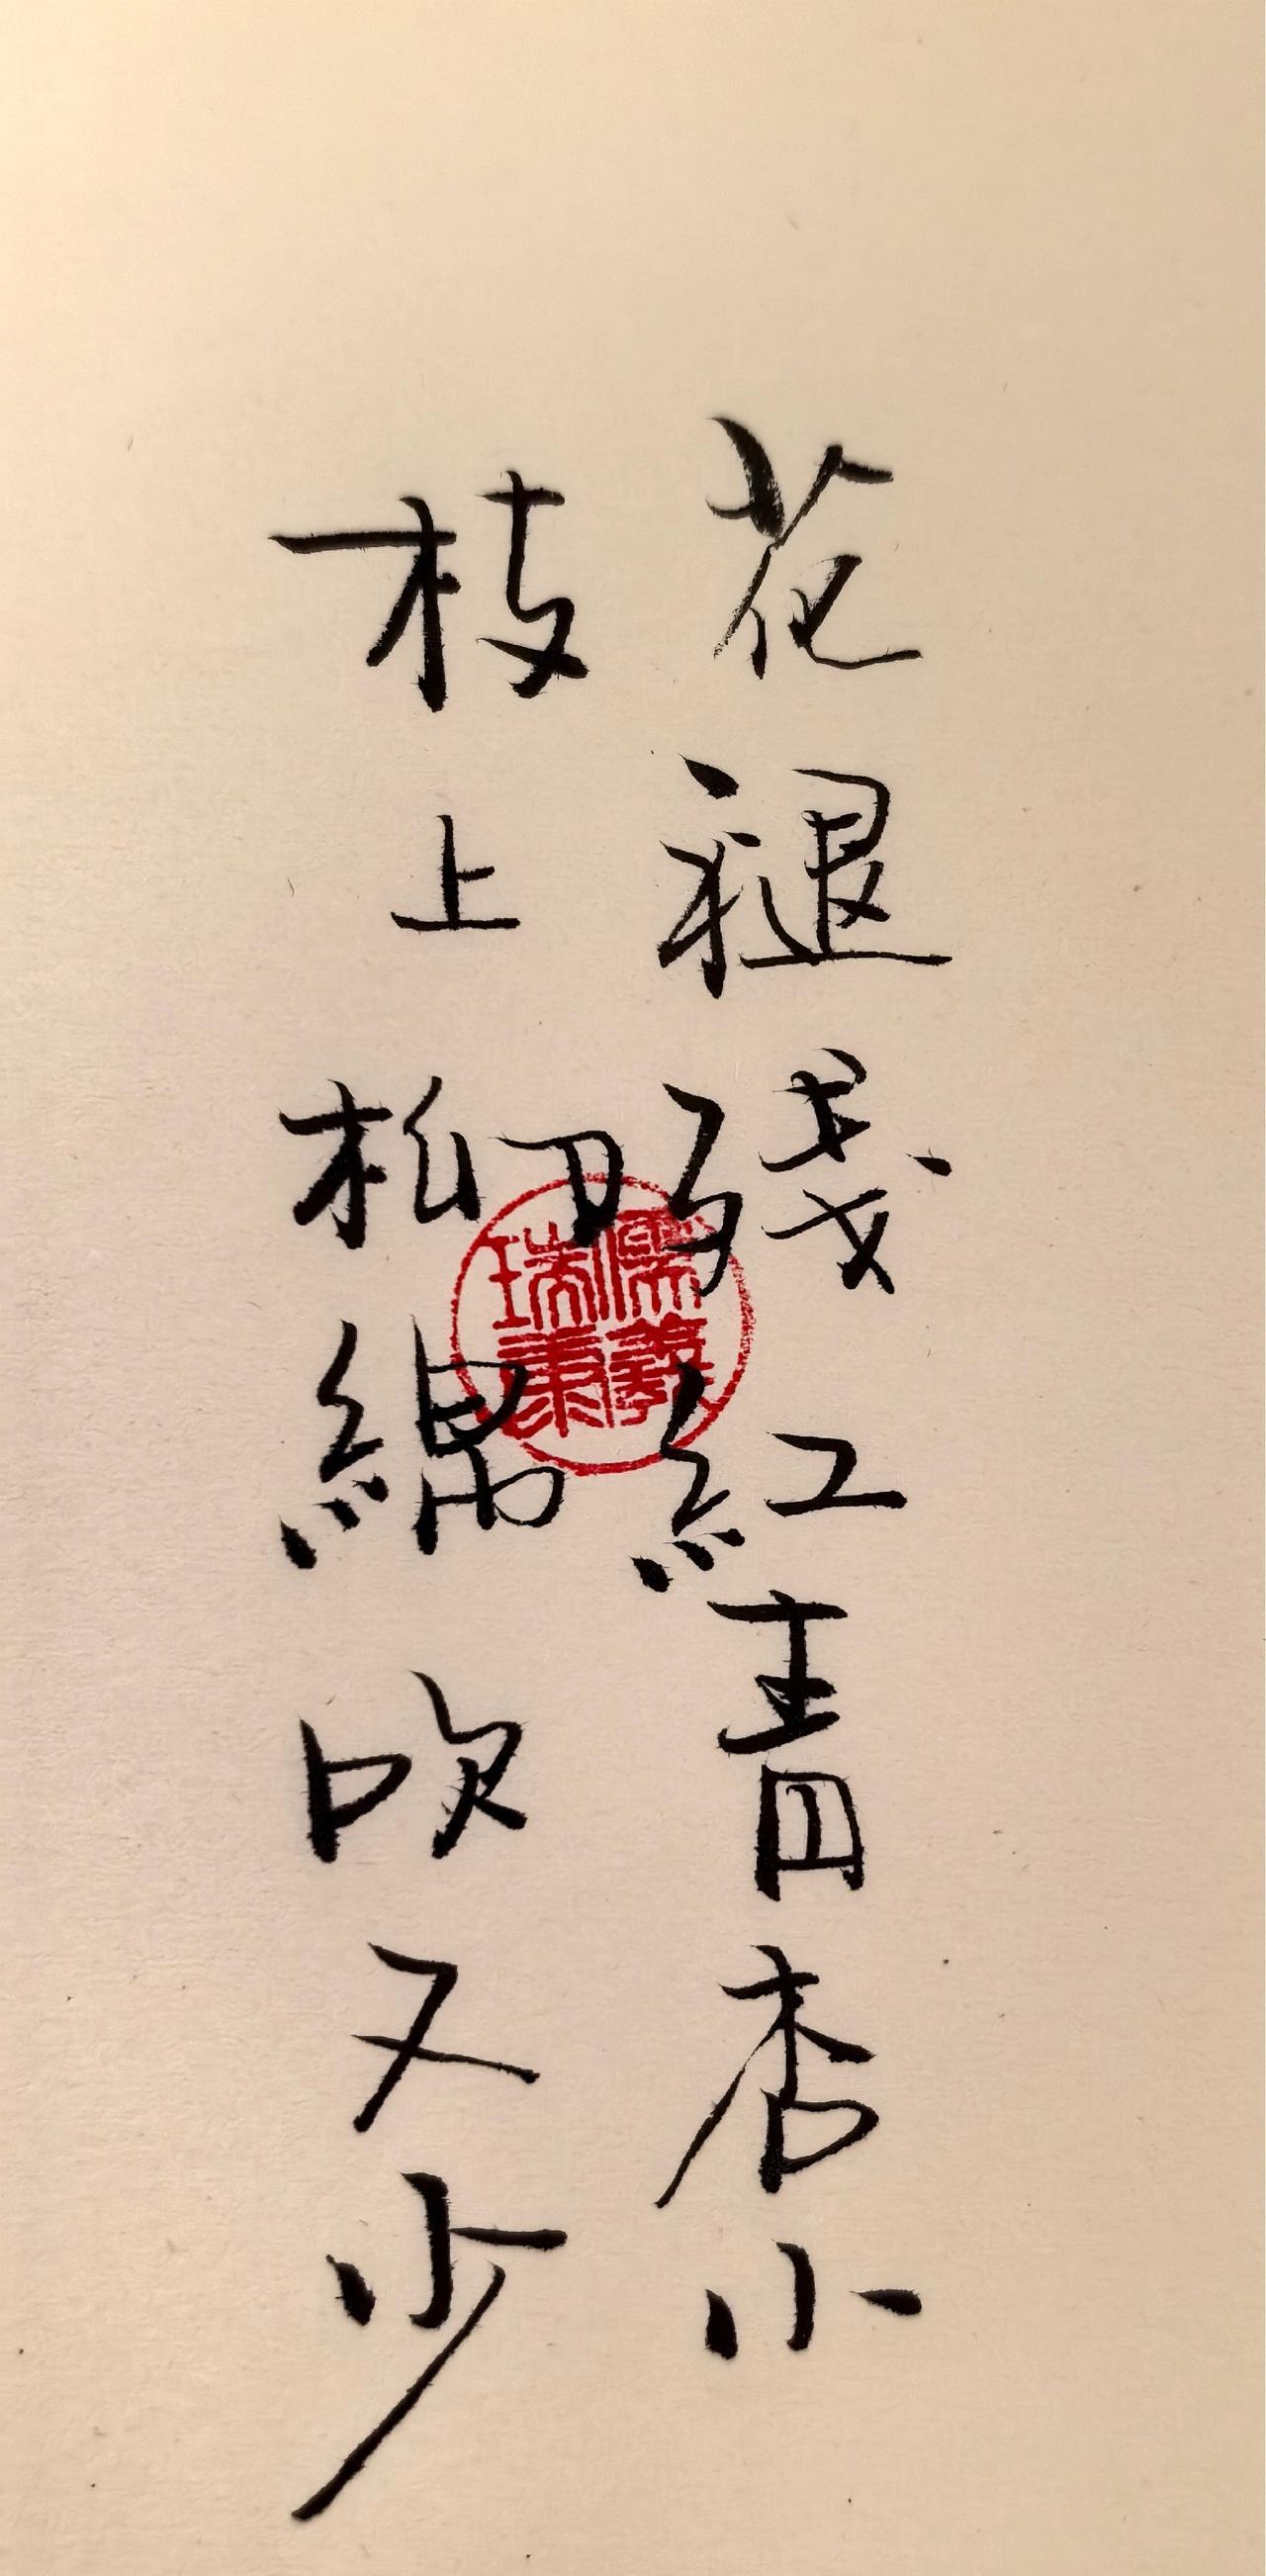 花褪殘紅青杏小
枝上柳綿吹又少